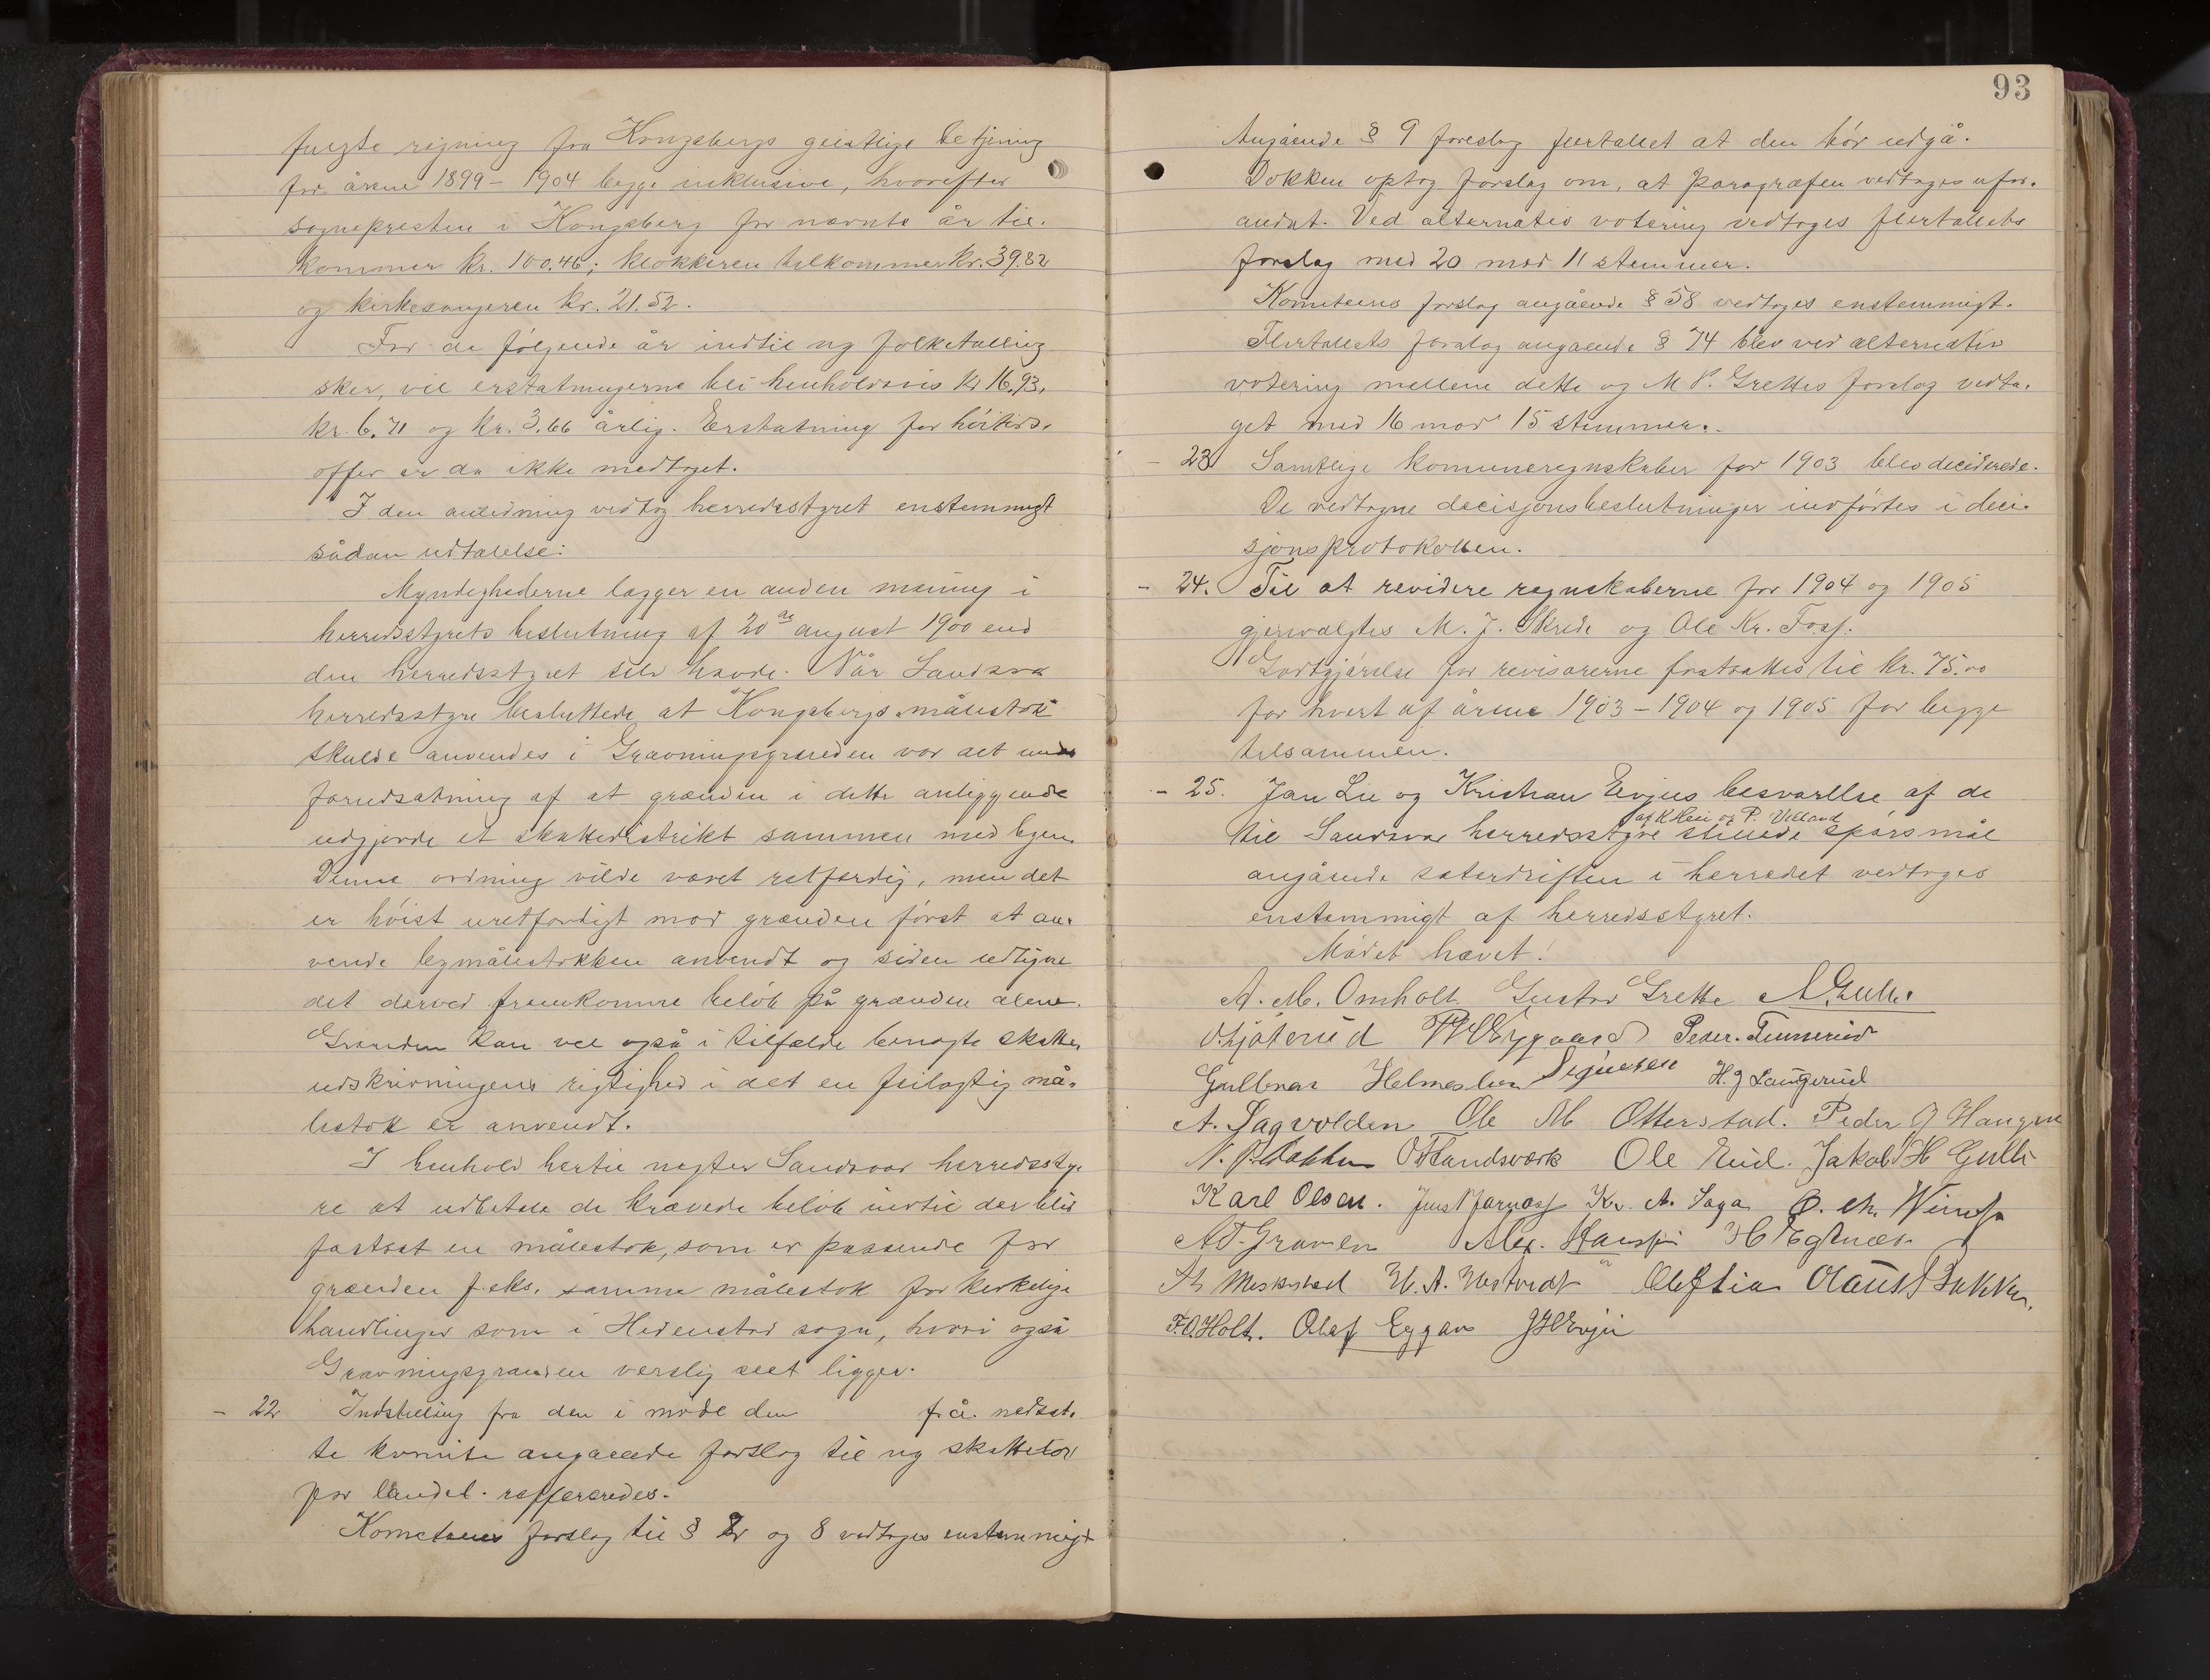 fulgte regning fra Kongsbergs geistlige betjening
for årene 1899 - 1904 begge inklusive, hvorefter
sognepresten i Kongsberg for nævnte år til-
kommer kr. 100.46; klokkeren tilkommer kr. 39.82
og kirkesangeren kr. 21.52.
For de følgende år indtil ny folketælling
sker, vil erstatningerne bli henholdsvis kr 16.93,
kr. 6.71 og kr. 3.66 årlig. Erstatning for høitids-
offer er da ikke medtaget.
I den anledning vedtog herredsstyret enstemmigt
sådan udtalelse:
Myndighederne lægger en anden mening i
herredsstyrets beslutning af 20de august 1900 end
den herredsstyret selv havde. Når Sandsvær
herredsstyre besluttede at Kongsbergs målestok
skulde anvendes i Gravningsgrænden var det under
forudsætning af at grænden i dette anliggende
udgjorde et skattedistrikt sammen med byen.
Denne ordning vilde været retfærdig, men det
er høist uretfærdigt mod grænden først at an-
vende bymålestokken anvendt og siden udligne
det derved fremkomne beløb på grænden alene.
Grænden kan vel også i tilfælde benægte skatte-
udskrivningens rigtighed i det en feilagtig må-
lestok er anvendt.
I henhold hertil negter Sandsvær herredssty-
re at udbetale de krævede beløb indtil der blir
fastsat en målestok, som er passende for
grænden f.eks. samme målestok for kirkelige
handlinger som i Hedenstad sogn, hvori også
Gravningsgrænden verslig seet ligger.
- 22 Indstilling fra den i møde den f.å. nedsat-
te komite angaaende forslag til ny skattelov
for landet refferéredes.
Komiteens forslag til § og 8 vedtoges enstemmigt
93
Angående § 9 foreslog flertallet at den bør udgå.
Dokken optog forslag om, at paragrafen vedtages ufor-
andret. Ved alternativ votering vedtoges flertallets
forslag med 20 mod 11 stemmer.
Komiteens forslag angående § 58 vedtoges enstemmigt.
Flertallets forslag angaaende § 74 blev ved alternativ
votering mellem dette og M P. Grettes forslag vedta-
get med 16 mod 15 stemmer.
- 23 Samtlige komuneregnskaber for 1903 blev deciderede.
De vedtagne decisjonsbeslutninger indførtes i deci-
sjonsprotokollen.
- 24. Til at revidere regnskaberne for 1904 og 1905
gjenvalgtes M. J. Skrede og Ole Kr. Foss.
Godtgjørelse for revisorerne fastsattes til kr. 75.00
for hvert af årene 1903 - 1904 og 1905 for begge
tilsammen.
- 25. Jan Lie og Kristian Evjus besvarelse af de
af K Heie og P. Velland
til Sandsvær herredsstyre stillede spørsmål
angående sæterdriften i herredet vedtoges
enstemmigt af herredsstyret.
Mødet hævet!
A. M. Omholt Gustav Grette A Gulli
Peder Tinnerud
Gullbrar Helmesken H. J Langerud
A. Sagvolden Ole M Otterstad. Peder J Haugen
N. P. Dokken O Landsværk Ole Eid. Jakob H Gulli
Karl Olsen. Kr. A. Saga
Ad. Graven Alex. Hansen H Tegtnæs
Th Meskestad H. A. Olaus S Bakken.
F. O. Holt. Olaf Eggar J H Evju